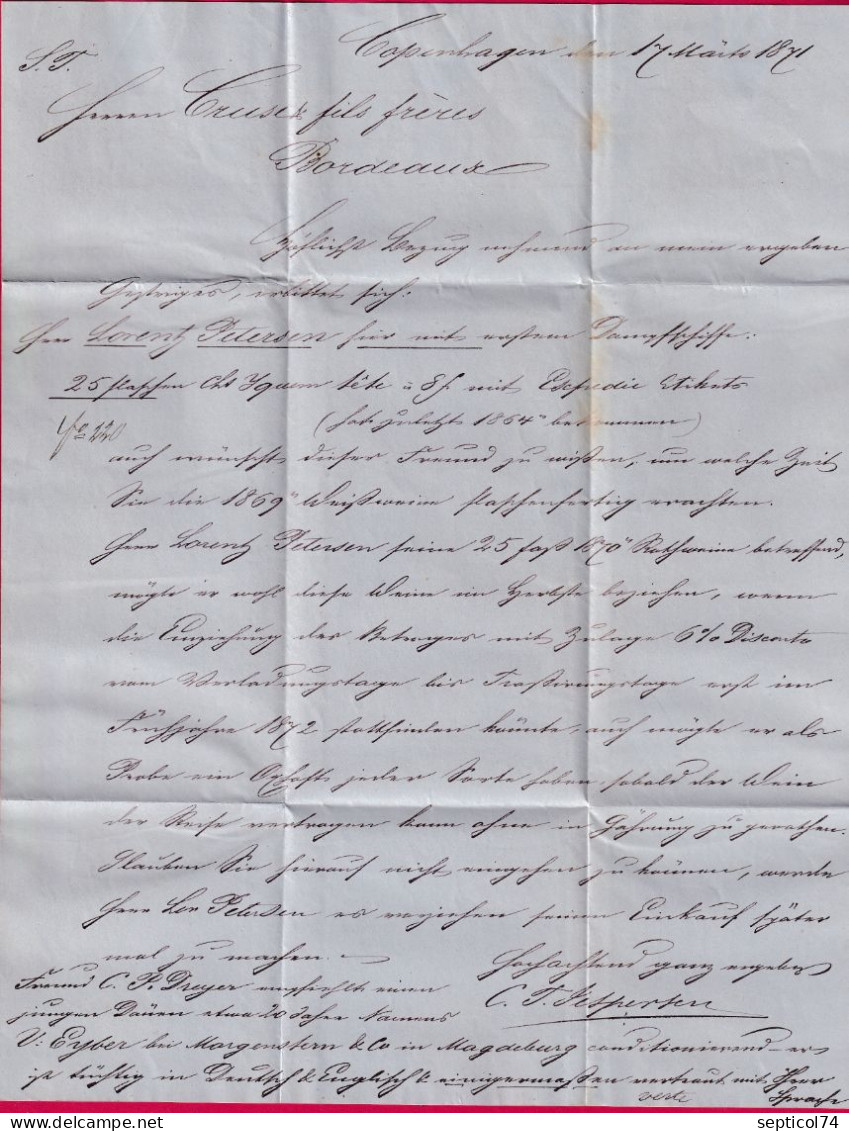 Copenhagen den 17 Märts 1871
S. T.
Herren Cruse & fils frères
Bordeaux
Höflichst Bezug nehmend an mein ergeben
Gestriges, erbittet sich:
Herr Lorentz Petersen hier mit erstem Dampfschiffe:
25 flaschen Chs Yquem tête à 8 f. mit Etikets
(hat zuletzt 1864er bekommen)
No 220
auch wünscht dieser Freund zu wißen, um welche Zeit
Sie die 1869er Weißweine flaschenfertig erachten.
Herr Lorentz Petersen seine 25 faß 1870er Rothweine betreffend,
mögte er wohl diese Weine im Herbste beziehen, wenn
die Einziehung des Betrages mit Zulage 6% Disconto
vom Verladungstage bis Traßirungstage erst im
Frühjahre 1872 stattfinden könnte, auch mögte er als
Probe ein Oxhoft jeder Sorte haben, sobald der Wein
der Reise vertragen kann ohne in Gährung zu gerathen.
Glauben Sie hierauf nicht eingehen zu können, werde
Herr Lor Petersen es vorziehen seinen Einkauf später
mal zu machen.
Hochachtend ganz ergebenst
C. T. Jespersen
Freund C. P. Dreyer empfiehlt einen
jungen Dänen etwa 20 Jahre Namens
V: Eyber bei Morgenstern & Co in Magdeburg conditionierend – er
ist tüchtig in Deutsch & Englisch & einigermaßen vertraut mit Ihrer
Sprache
septicol74